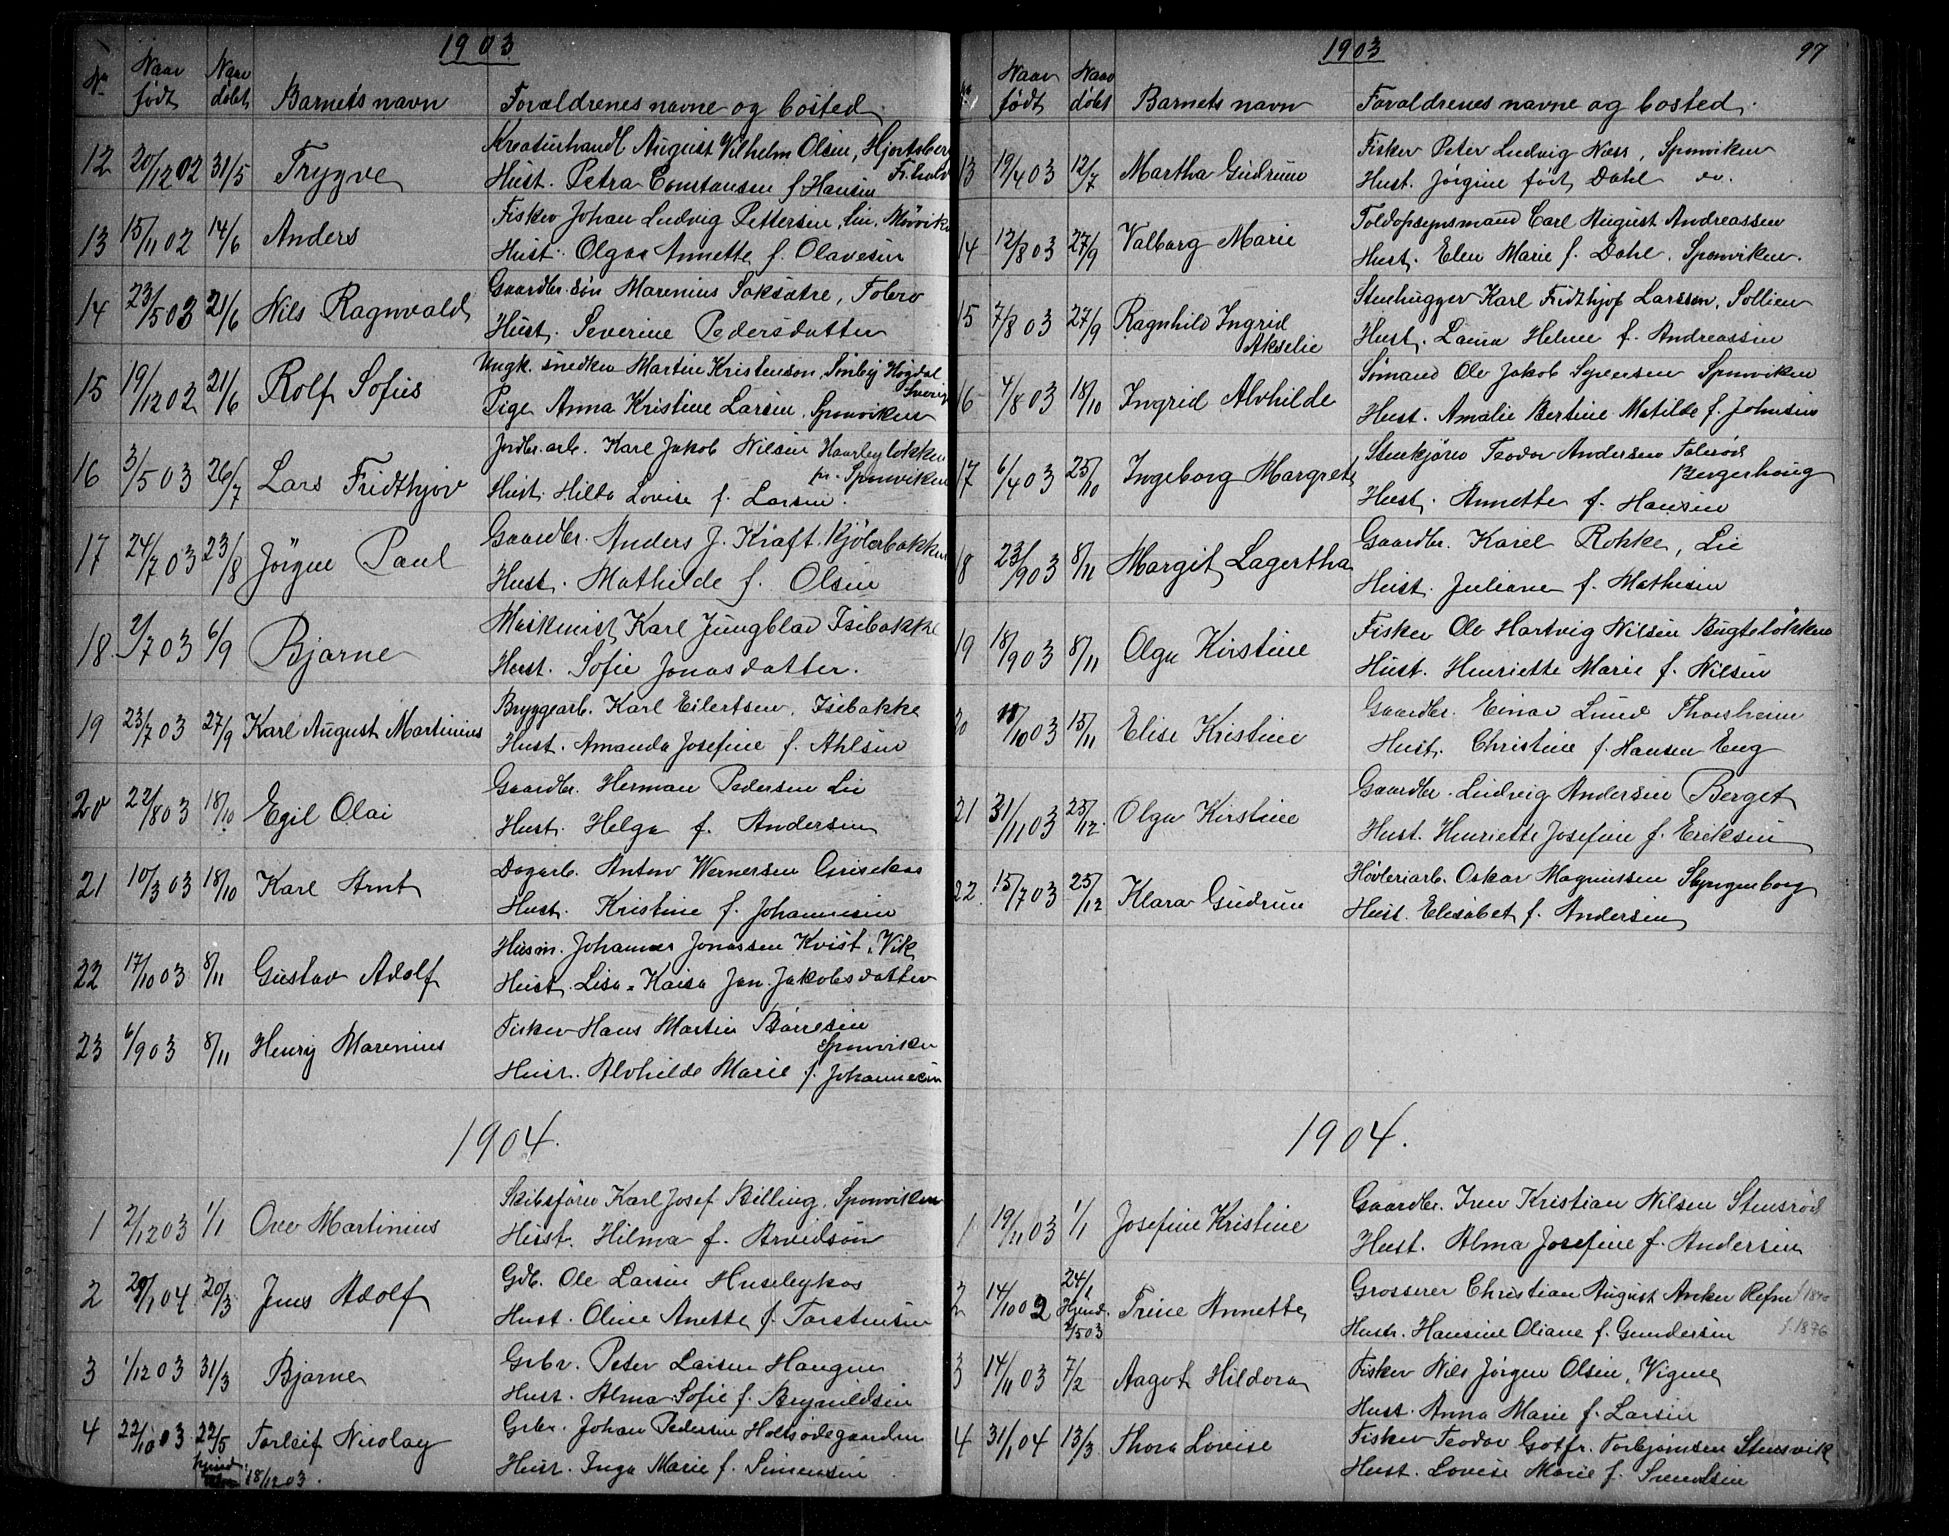 1903
No Naar født Naar døbt Barnets navn Forældrenes navne og bosted
12 20/12 02 31/5 Trygve Kreaturhandl August Vilhelm Olsen, Hjortsberg
Hust. Petra Constansen f Hansen Fr.hald
13 15/11 02 14/6 Anders Fisker Johan Ludvig Pettersen,
Hust. Olga Annette f. Olavesen
14 23/5 03 21/6 Nils Ragnvald Gaardbr. søn Marenius Saksætre, Folerø
Hust. Severine Pedersdatter
15 19/12 02 21/6 Rolf Sofus Ungk. snedker Martin Kristenson, Sønby Høgdal
Sverige
Pige Anna Kristine Larsen, Sponviken
16 3/5 03 26/7 Lars Fridthjov Jordbr.arb. Karl Jakob Nilsen Haarbyløkken
pr. Sponviken
Hust. Hilda Lovise f. Larsen.
17 24/7 03 23/8 Jörgen Paul Gaardbr. Anders J. Kraft. Kjølerbakken
Hust. Mathilde f. Olsen
18 2/7 03 6/9 Bjarne Maskinist Karl Jungblad Isebakke
Hust. Sofie Jonasdatter.
19 23/7 03 27/9 Karl August Martinius Bryggearb. Karl Eilertsen, Isebakke
Hust. Amanda Josefine f. Ahlsen
20 22/8 03 18/10 Egil Olai Gaardbr. Herman Pedersen Lie
Hust. Helga f. Andersen
21 10/3 03 18/10 Karl Arnt Dagarb. Anton Wernersen Grisekaas
Hust. Kristine f. Johannesen
22 17/10 03 8/11 Gustav Adolf Husm. Johannes Jonassen Kvist, Vik
Hust. Lisa-Kaisa Jan. Jakobsdatter
23 6/9 03 8/11 Henry Marenius Fisker Hans Martin Børresen
Sponviken
Hust. Alvhilde Marie f. Johannesen
1904.
1 2/12 03 1/1 Ove Martinius Skibsfører Karl Josef Billing, Sponviken
Hust. Hilma f. Arvidson
2 29/1 04 20/3 Jens Adolf Gdb. Ole Larsen Husebykas
Hust. Oline Anette f. Torstensen
3 1/12 03 31/3 Bjarne Grbr. Peter Larsen Haugen
Hust. Alma Sofie f. Brynildsen
4 22/10 03 22/5 Torleif Nicolay Grbr. Johan Pedersen Holtsødegaarden
Hust. Inga Marie f. Simensen
hjemd. 18/12 03.
1903 97
No Naar født Naar døbt Barnets navn Forældrenes navne og bosted.
13 19/4 03 12/7 Martha Gudrun Fisker Peter Ludvig Næss, Sponviken
Hust. Jørgine født Dahl do.
14 12/8 03 27/9 Valborg Marie Toldopsynsmand Carl August Andreassen
Hust. Elen Marie f. Dahl. Sponviken.
15 7/8 03 27/9 Ragnhild Ingrid Stenhugger Karl Fridthjof Larssen, Sollien
Akselie Hust. Laura Helene f. Andreassen
16 4/8 03 18/10 Ingrid Alvhilde Sømand Ole Jakob Syversen Sponviken
Hust. Amalie Bertine Matilde f. Johnsen
17 6/4 03 25/10 Ingeborg Margrete Stenkjører Teodor Andersen Folerød
Bergerhaug
Hust. Annette f. Hansen
18 23/9 03 8/11 Margit Lagertha Gaardbr. Karel Rokke, Lie
Hust. Juliane f. Mathisen
19 18/9 03 8/11 Olga Kirstine Fisker Ole Hartvig Nilsen Bugteløkken
Hust. Henriette Marie f. Nilsen
20 18/10 03 15/11 Elise Kristine Gaardbr. Einar Lund Thorsheim
Hust. Christine f. Hansen Eng
21 21/11 03 25/12 Olga Kirstine Gaardbr. Ludvig Andersen Berget
Hust. Henriette Josefine f. Eriksen
22 15/7 03 25/12 Klara Gudrun Høvleriarb. Oskar Magnussen Slyngenborg
Hust. Elisabet f. Andersen
1904.
1 19/11 03 1/1 Josefine Kristine Gaardbr. Iver Kristian Nilsen Stensrød
Hust. Alma Josefine f. Andersen
2 14/10 02 24/1 Hjemd. 2/5 03 Trine Annette Grosserer Christian August Anker Refne
Hustr. Hansine Oliane f. Gundersen f. 1876
3 14/11 03 7/2 Aagot Hildora Fisker Nils Jørgen Olsen, Vigene
Hust. Anna Marie f. Larsen
4 31/1 04 13/3 Thora Lovise Fisker Teodor Gotfr. Torbjørnsen Stensvik
Hust. Lovise Marie f. Svendsen